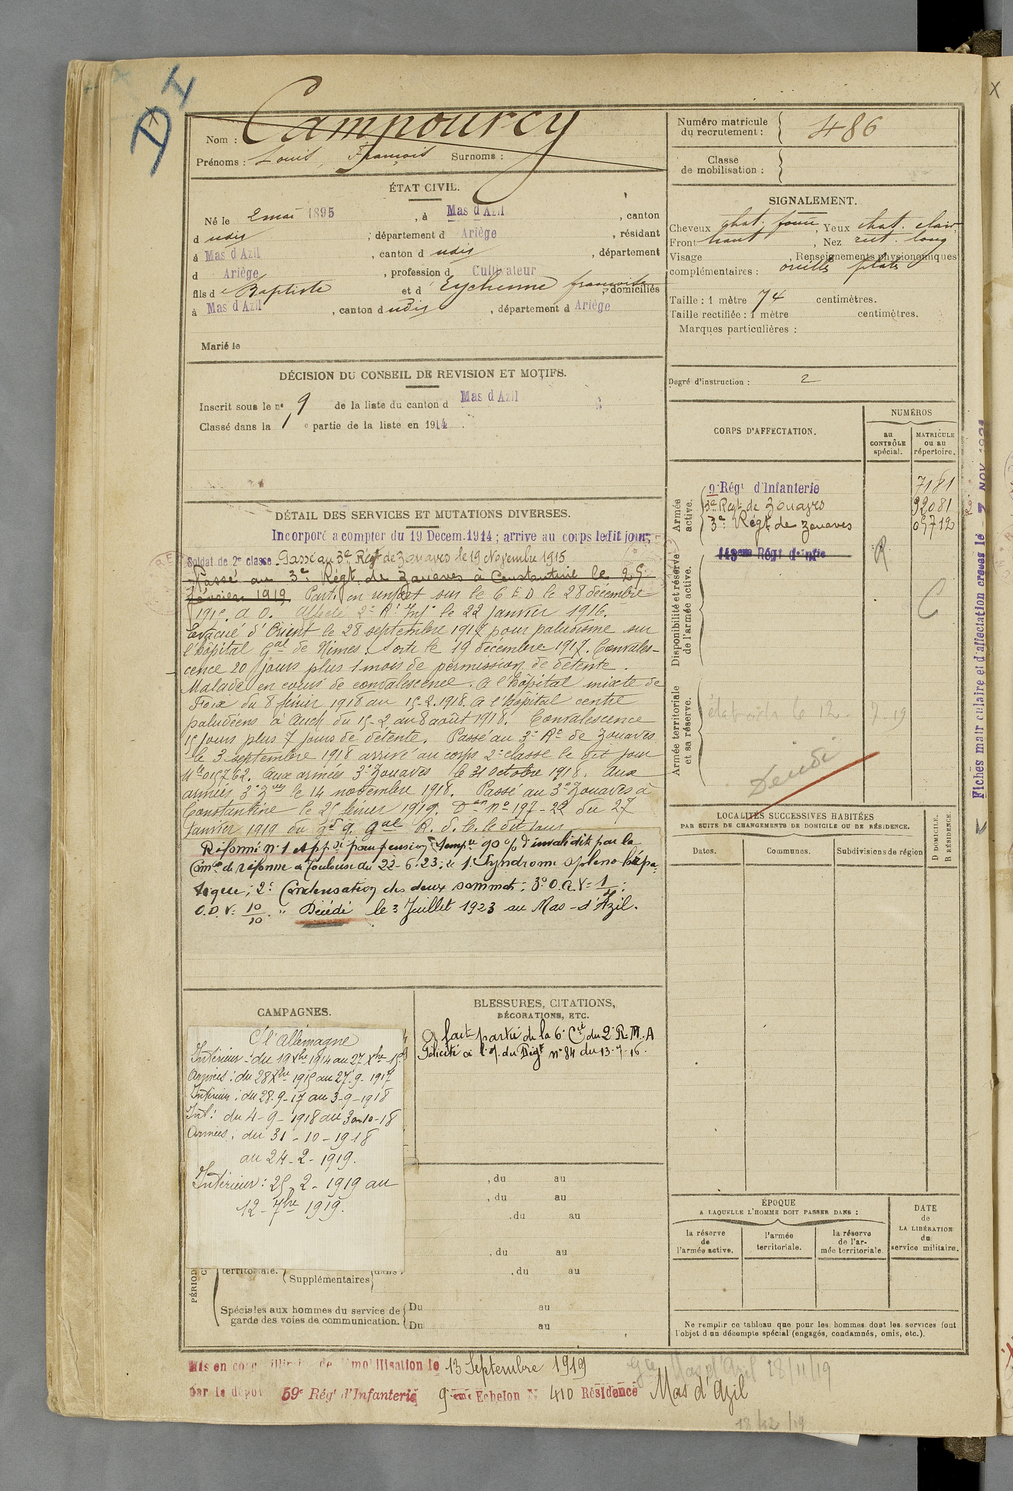 D I
Nom : Campourcy
Prénoms : Louis, François Surnoms :
Numéro matricule
du recrutement : 486
Classe
de mobilisation :
ÉTAT CIVIL.
Né le 2 mai 1895, à Mas d'Azil, canton
d udis, département d Ariège, résidant
à Mas d'Azil, canton d udis, département
d Ariège, profession d Cultivateur
fils de Baptiste et d'Eychenne françoise, domiciliés
à Mas d'Azil, canton d udis, département d Ariège
Marié le
SIGNALEMENT.
Cheveux chat. foncé, Yeux chat. clair,
Front haut, Nez rect. long
Visage , Renseignements physionomiques
complémentaires : oreilles plates
Taille : 1 mètre 74 centimètres.
Taille rectifiée : 1 mètre centimètres.
Marques particulières :
Degré d'instruction : 2
DÉCISION DU CONSEIL DE REVISION ET MOTIFS.
Inscrit sous le n° 9 de la liste du canton d Mas d'Azil
Classé dans la 1e partie de la liste en 1914.
CORPS D'AFFECTATION.
NUMÉROS
au
CONTRÔLE
spécial.
MATRICULE
OU AU
répertoire.
Armée
active.
9e Régt d'Infanterie 7181
2e Regt de Zouaves 92081
3e Régt de Zouaves 05712
Disponibilité et réserve
de l'armée active.
143eme Régt d'Infie
R
C
Armée territoriale
et sa réserve.
Décédé
DÉTAIL DES SERVICES ET MUTATIONS DIVERSES.
Incorporé a compter du 19 Décem. 1914 ; arrivé au corps ledit jour,
Soldat de 2e classe. Passé au 3e Régt de Zouaves le 19 Novembre 1915
Passé au 3e Régt. de Zouaves à Constantine le 25
février 1919. Parti en renfort sur le C.E.D. le 28 décembre
1915. A.O. Affecté 2e Rt Inft le 22 Janvier 1916.
Evacué d'Orient le 28 septembre 1917 pour paludisme sur
l'hôpital Gal de Nimes. Sorti le 19 décembre 1917. Convales-
cence 20 jours plus 1 mois de permission de détente.
Malade en cours de convalescence. à l'Hôpital mixte de
Foix du 8 février 1918 au 15.2.1918. à l'hôpital centre
paludéens à Auch du 15-2 au 8 août 1918. Convalescence
15 jours plus 7 jours de détente. Passé au 3e Rt de Zouaves
le 3 septembre 1918 arrivé au corps 2e classe le dit jour
Mle 015762. Aux armées 3e Zouaves le 31 octobre 1918. Aux
armées 3e Zves le 14 novembre 1918. Passé au 3e Zouaves à
Constantine le 25 février 1919. Don n° 197-22 du 27
Janvier 1919 du gd q. gal A. d. C. le dit jour
Réformé n° 1 et ppon pour pension Tempre 90 % d'invalidité par la
Comon de réforme de Toulouse du 22-6-23 : 1° Syndrome spleno-hépa-
tique ; 2° Condensation des deux sommets ; 3° O.G.V = 1/
O.D.V = 10/10. " Décédé le 3 Juillet 1923 au Mas-d'Azil.
LOCALITÉS SUCCESSIVES HABITÉES
PAR SUITE DE CHANGEMENTS DE DOMICILE OU DE RÉSIDENCE.
Dates.
Communes.
Subdivisions de région
D DOMICILE.
R RÉSIDENCE.
Fiches matriculaire et d'affectation créées le
CAMPAGNES.
C. l'Allemagne
Intérieur : du 19 Xbre 1914 au 27 Xbre 15
Armées : du 28 Xbre 1915 au 27.9.1917
Intérieur : du 28.9-17 au 3-9-1918
Int : du 4-9-1918 au 30-10-18
Armées : du 31-10-1918
au 24-2-1919.
Intérieur : 25 2-1919 au
12-7bre 1919.
BLESSURES, CITATIONS,
DÉCORATIONS, ETC.
A fait partie de la 6e Cie du 2e R.M.A
Félicité à l'O. du Régt n° 84 du 13-7-16.
, du au
, du au
, du au
, du au
, du au
territoriale. Supplémentaires dans
Spéciales aux hommes du service de
garde des voies de communication.
Du au
Du au
ÉPOQUE
A LAQUELLE L'HOMME DOIT PASSER DANS :
la réserve
de
l'armée active.
l'armée
territoriale.
la réserve
de l'ar-
mée territoriale.
DATE
de
LA LIBÉRATION
du
service militaire.
Ne remplir ce tableau que pour les hommes dont les services font
l'objet d'un décompte spécial (engagés, condamnés, omis, etc.).
Mis en congé illimité de démobilisation le 13 Septembre 1919
par le dépôt 59e Régt d'Infanterie 9eme Echelon N° 410 Résidence Mas d'Azil
Mas d'Azil 28/11/19
18/12/19